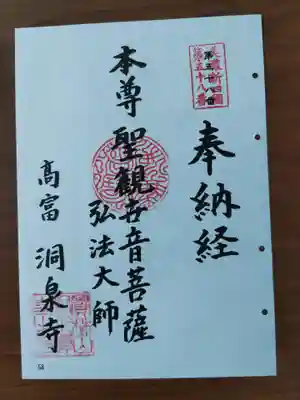 奉納経
本尊聖観世音菩薩
弘法大師
高富 洞泉寺
第五十八番